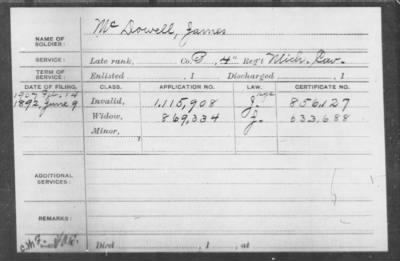 NAME OF SOLDIER: Mc Dowell, James
SERVICE: Late rank, Co. B, 4" Reg't Mich. Cav.
TERM OF SERVICE: Enlisted , 1 Discharged , 1
DATE OF FILING. CLASS. APPLICATION NO. LAW. CERTIFICATE NO.
1907 Feb. 14 Invalid, 1,115,908 J. 856127
1892, June 9 Widow, 869,334 633,688
Minor,
ADDITIONAL SERVICES:
REMARKS:
Died , 1 , at